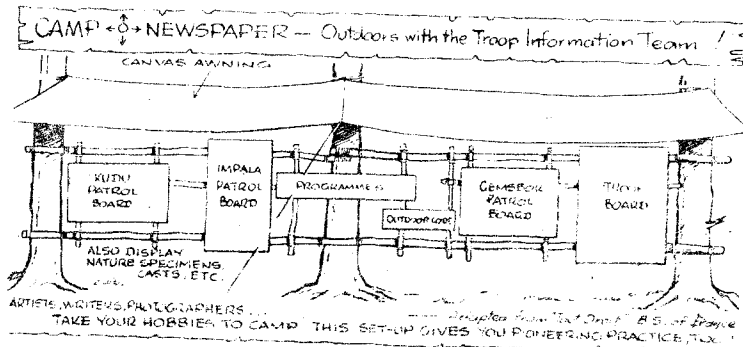 CAMP NEWSPAPER — Outdoors with the Troop Information Team !
CANVAS AWNING
KUDU
PATROL
BOARD
IMPALA
PATROL
BOARD
PROGRAMMES
OUTDOOR CODE
GEMSBOK
PATROL
BOARD
TROOP
BOARD
ALSO DISPLAY
NATURE SPECIMENS,
CASTS, ETC.
ARTISTS, WRITERS, PHOTOGRAPHERS...
Adapted from B.S. of France
TAKE YOUR HOBBIES TO CAMP THIS SET-UP GIVES YOU PIONEERING PRACTICE, TOO!